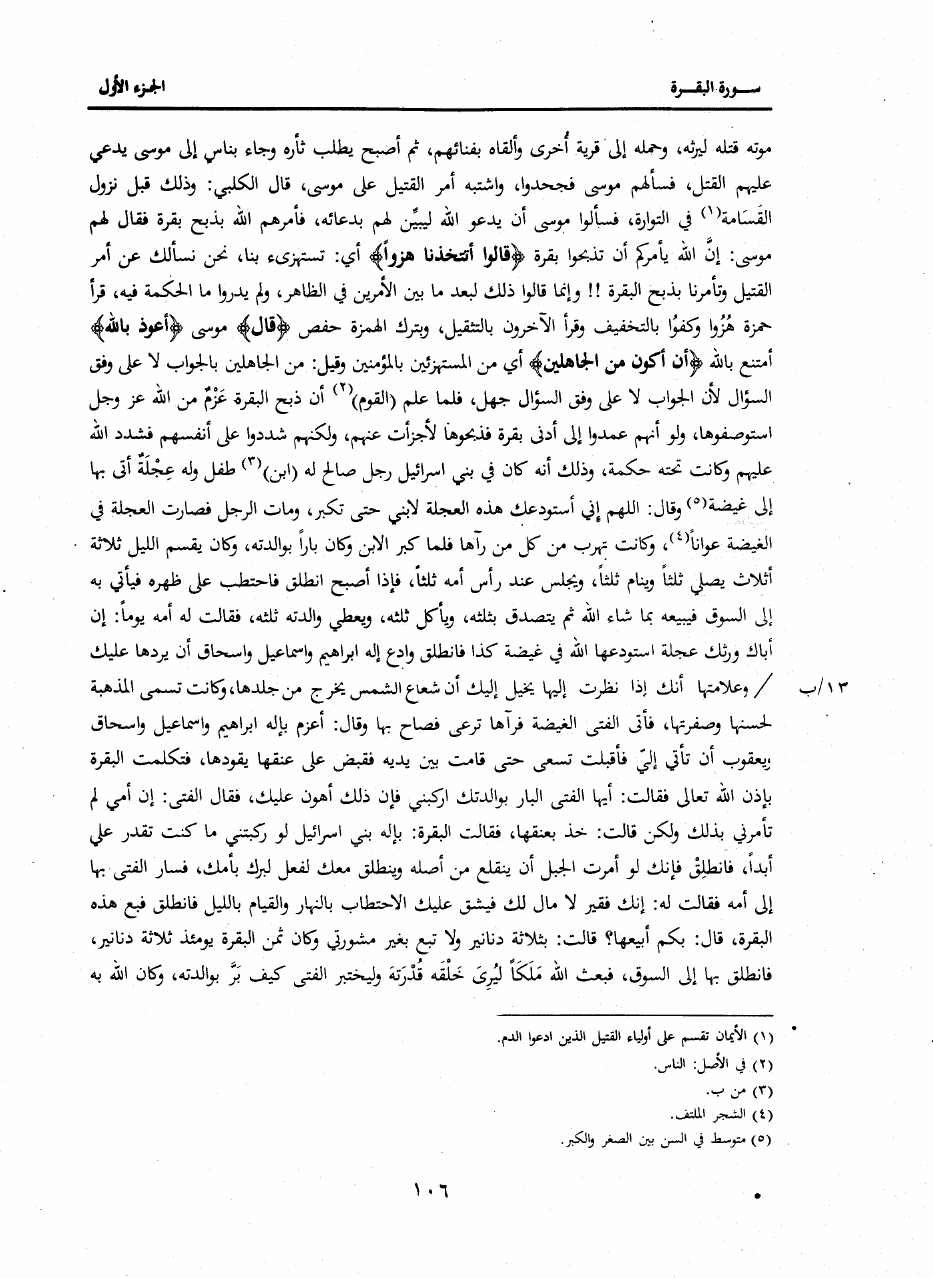 سـورة البقـرة
الجزء الأول
موته قتله ليرثه، وحمله إلى قرية أُخرى وألقاه بفنائهم، ثم أصبح يطلب ثأره وجاء بناس إلى موسى يدعي
عليهم القتل، فسألهم موسى فجحدوا، واشتبه أمر القتيل على موسى، قال الكلبي: وذلك قبل نزول
القَسَامة(١) في التوارة، فسألوا موسى أن يدعو الله ليبيِّن لهم بدعائه، فأمرهم الله بذبح بقرة فقال لهم
موسى: إنَّ الله يأمركم أن تذبحوا بقرة ﴿قالوا أتتخذنا هزواً﴾ أي: تستهزىء بنا، نحن نسألك عن أمر
القتيل وتأمرنا بذبح البقرة !! وإنما قالوا ذلك لبعد ما بين الأمرين في الظاهر، ولم يدروا ما الحكمة فيه، قرأ
حمزة هُزُوا وكفوًا بالتخفيف وقرأ الآخرون بالتثقيل، وبترك الهمزة حفص ﴿قال﴾ موسى ﴿أعوذ بالله﴾
أمتنع بالله ﴿أن أكون من الجاهلين﴾ أي من المستهزئين بالمؤمنين وقيل: من الجاهلين بالجواب لا على وفق
السؤال لأن الجواب لا على وفق السؤال جهل، فلما علم (القوم)(٢) أن ذبح البقرة عَزْمٌ من الله عز وجل
استوصفوها، ولو أنهم عمدوا إلى أدنى بقرة فذبحوها لأجزأت عنهم، ولكنهم شددوا على أنفسهم فشدد الله
عليهم وكانت تحته حكمة، وذلك أنه كان في بني اسرائيل رجل صالح له (ابن)(٣) طفل وله عِجْلَةٌ أتى بها
إلى غيضة(٥) وقال: اللهم إني أستودعك هذه العجلة لابني حتى تكبر، ومات الرجل فصارت العجلة في
الغيضة عواناً(٤)، وكانت تهرب من كل من رآها فلما كبر الابن وكان باراً بوالدته، وكان يقسم الليل ثلاثة
أثلاث يصلي ثلثاً وينام ثلثاً، ويجلس عند رأس أمه ثلثاً، فإذا أصبح انطلق فاحتطب على ظهره فيأتي به
إلى السوق فيبيعه بما شاء الله ثم يتصدق بثلثه، ويأكل ثلثه، ويعطي والدته ثلثه، فقالت له أمه يوماً: إن
أباك ورثك عجلة استودعها الله في غيضة كذا فانطلق وادع إله ابراهيم واسماعيل واسحاق أن يردها عليك
١٣/ب
/ وعلامتها أنك إذا نظرت إليها يخيل إليك أن شعاع الشمس يخرج من جلدها، وكانت تسمى المذهبة
لحسنها وصفرتها، فأتى الفتى الغيضة فرآها ترعى فصاح بها وقال: أعزم بإله ابراهيم واسماعيل واسحاق
ويعقوب أن تأتي إليّ فأقبلت تسعى حتى قامت بين يديه فقبض على عنقها يقودها، فتكلمت البقرة
بإذن الله تعالى فقالت: أيها الفتى البار بوالدتك اركبني فإن ذلك أهون عليك، فقال الفتى: إن أمي لم
تأمرني بذلك ولكن قالت: خذ بعنقها، فقالت البقرة: بإله بني اسرائيل لو ركبتني ما كنت تقدر علي
أبداً، فانطلِقْ فإنك لو أمرت الجبل أن ينقلع من أصله وينطلق معك لفعل لبرك بأمك، فسار الفتى بها
إلى أمه فقالت له: إنك فقير لا مال لك فيشق عليك الاحتطاب بالنهار والقيام بالليل فانطلق فبع هذه
البقرة، قال: بكم أبيعها؟ قالت: بثلاثة دنانير ولا تبع بغير مشورتي وكان ثمن البقرة يومئذ ثلاثة دنانير،
فانطلق بها إلى السوق، فبعث الله مَلَكَاً لِيُرِىَ خَلْقَه قُدْرَتهَ وليختبر الفتى كيف بَرَّ بوالدته، وكان الله به
(١) الأيمان تقسم على أولياء القتيل الذين ادعوا الدم.
(٢) في الأصل: الناس.
(٣) من ب.
(٤) الشجر الملتف.
(٥) متوسط في السن بين الصغر والكبر.
١٠٦